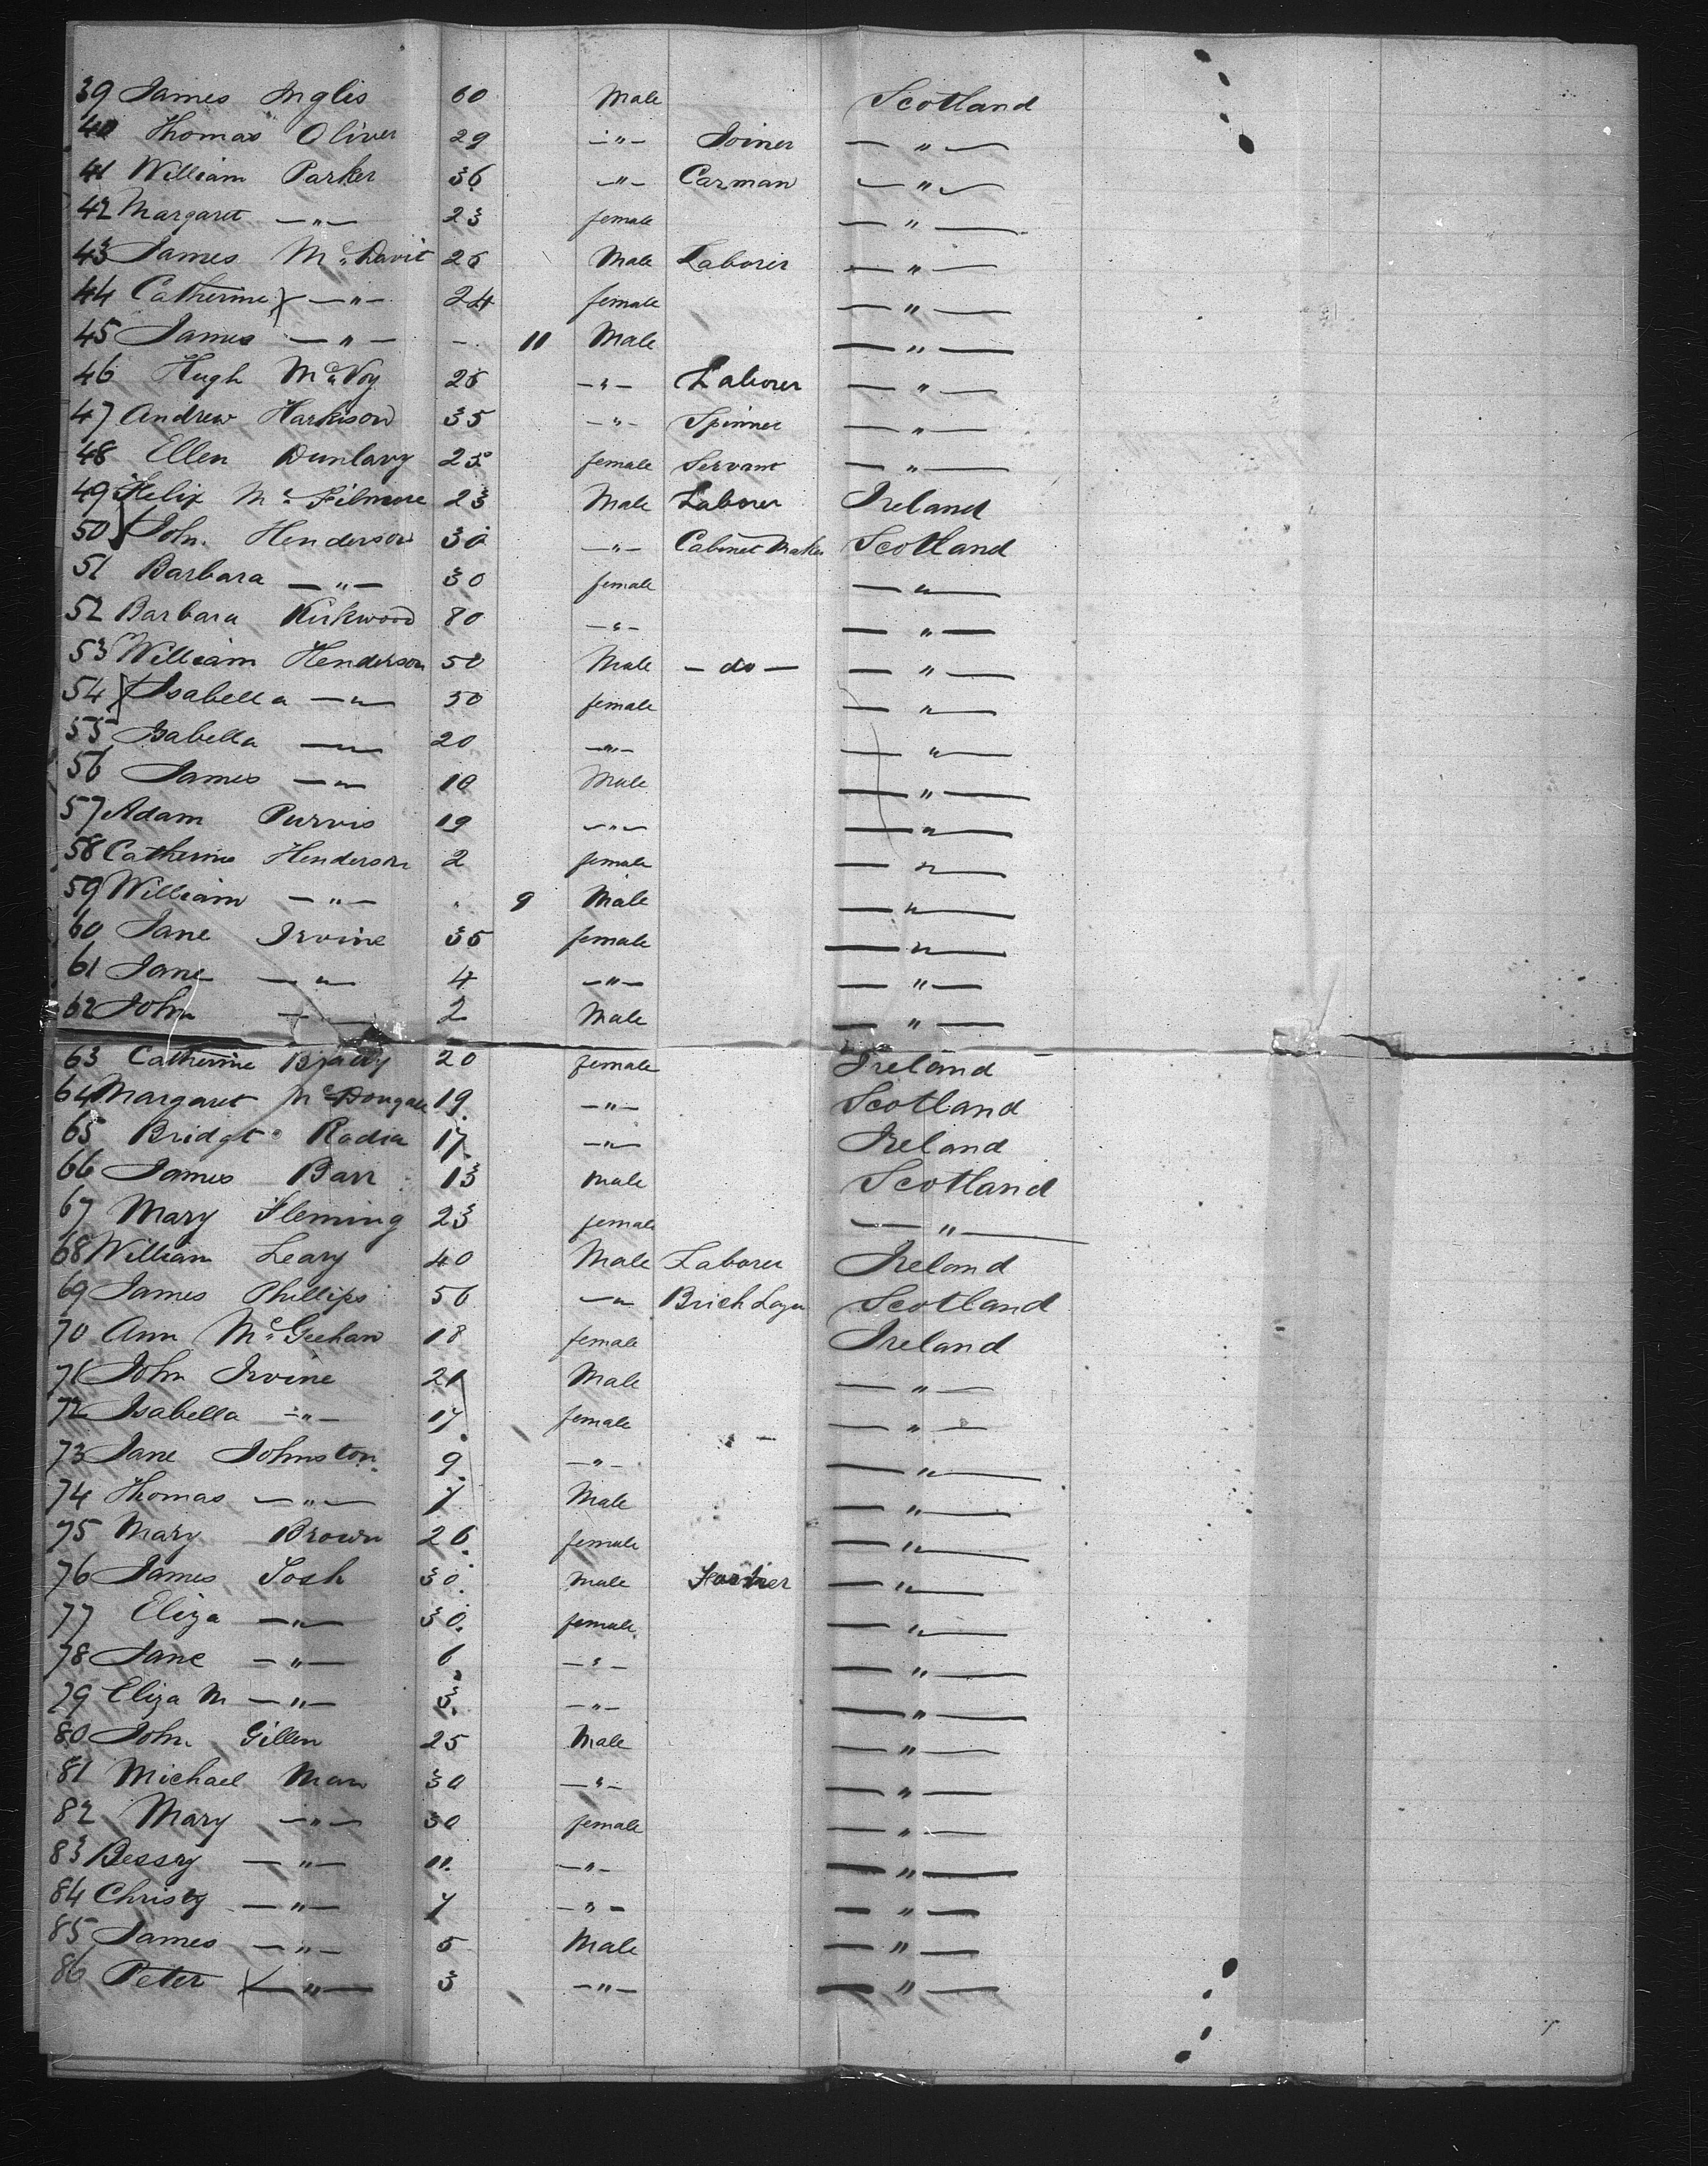 39 James Inglis 60 Male Scotland
40 Thomas Oliver 29 -"- Joiner - " -
41 William Parker 36 -"- Carman - " -
42 Margaret -"- 23 female - " -
43 James McDavit 26 Male Laborer - " -
44 Catherine -"- 24 female - " -
45 James -"- - 11 Male - " -
46 Hugh McVoy 26 -"- Laborer - " -
47 Andrew Harkison 35 -"- Spinner - " -
48 Ellen Dunlavy 25 female Servant - " -
49 Felix Mc Filmore 23 Male Laborer Ireland
50 John Henderson 30 -"- Cabinet Maker Scotland
51 Barbara -"- 30 female - " -
52 Barbara Kirkwood 80 -"- - " -
53 William Henderson 50 Male - do - - " -
54 Isabella -"- 50 female - " -
55 Isabella -"- 20 -"- - " -
56 James -"- 10 Male - " -
57 Adam Purvis 19 -"- - " -
58 Catherine Henderson 2 female - " -
59 William -"- 9 Male - " -
60 Jane Irvine 35 female - " -
61 Jane -"- 4 -"- - " -
62 John -"- 2 Male - " -
63 Catherine Brady 20 female Ireland
64 Margaret McDougall 19 -"- Scotland
65 Bridgt Radia 17 -"- Ireland
66 James Barr 13 Male Scotland
67 Mary Fleming 23 female - " -
68 William Leary 40 Male Laborer Ireland
69 James Phillips 56 -"- Brick Layer Scotland
70 Ann McGeehan 18 female Ireland
71 John Irvine 21 Male - " -
72 Isabella -"- 17 female - " -
73 Jane Johnston 9 -"- - " -
74 Thomas -"- 7 Male - " -
75 Mary Brown 26 female - " -
76 James Tosh 30 Male - " -
77 Eliza -"- 30 female - " -
78 Jane -"- 6 -"- - " -
79 Eliza M -"- 3 -"- - " -
80 John Gillen 25 Male - " -
81 Michael Man 30 -"- - " -
82 Mary -"- 30 female - " -
83 Bessy -"- 11 -"- - " -
84 Christy -"- 7 -"- - " -
85 James -"- 5 Male - " -
86 Peter -"- 3 -"- - " -